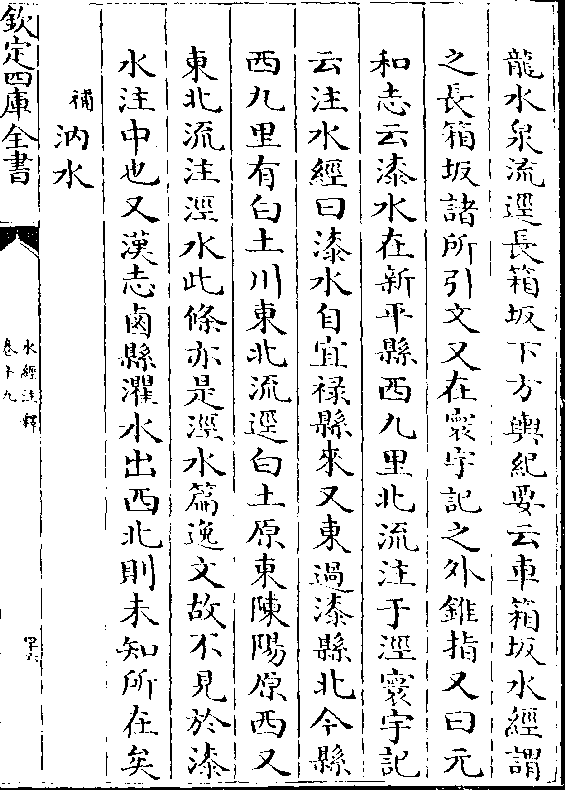 龍水泉流逕長箱坂下方輿紀要云車箱坂水經謂
之長箱坂諸所引文又在寰宇記之外錐指又曰元
和志云漆水在新平縣西九里北流注于涇寰宇記
云注水經曰漆水自宜禄縣來又東過漆縣北今縣
西九里有白土川東北流逕白土原東陳陽原西又
東北流注涇水此條亦是涇水篇逸文故不見於漆
水注中也又漢志鹵縣灈水出西北則未知所在矣
補 汭水
欽定四庫全書
水經注釋
卷十九